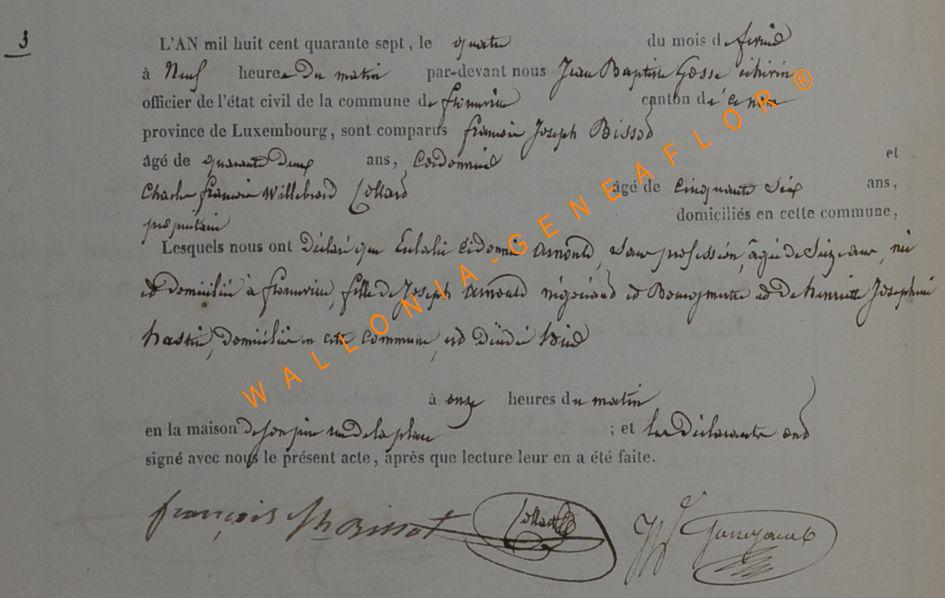 3
L'AN mil huit cent quarante sept, le quatre du mois de février
à Neuf heures du matin par-devant nous Jean Baptiste Gosse échevin
officier de l'état civil de la commune de canton de
province de Luxembourg, sont comparus François Joseph Bissot
âgé de quarante deux ans, Cordonnier et
Charles François Willebrord Collard âgé de cinquante six ans,
propriétaire domiciliés en cette commune,
Lesquels nous ont déclaré que Eulalie Sidonie Arnould, sans profession, âgée de Seize ans, née
et domiciliée à fille de Joseph Arnould négociant et Bourgmestre et de henriette Joséphine
hastir, domiciliés en cette commune, est décédée hier
à onze heures du matin
en la maison de son père rue de la place ; et les déclarants ont
signé avec nous le présent acte, après que lecture leur en a été faite.
françois Jh Bissot Collard
WALLONIA-GENEAFLOR®